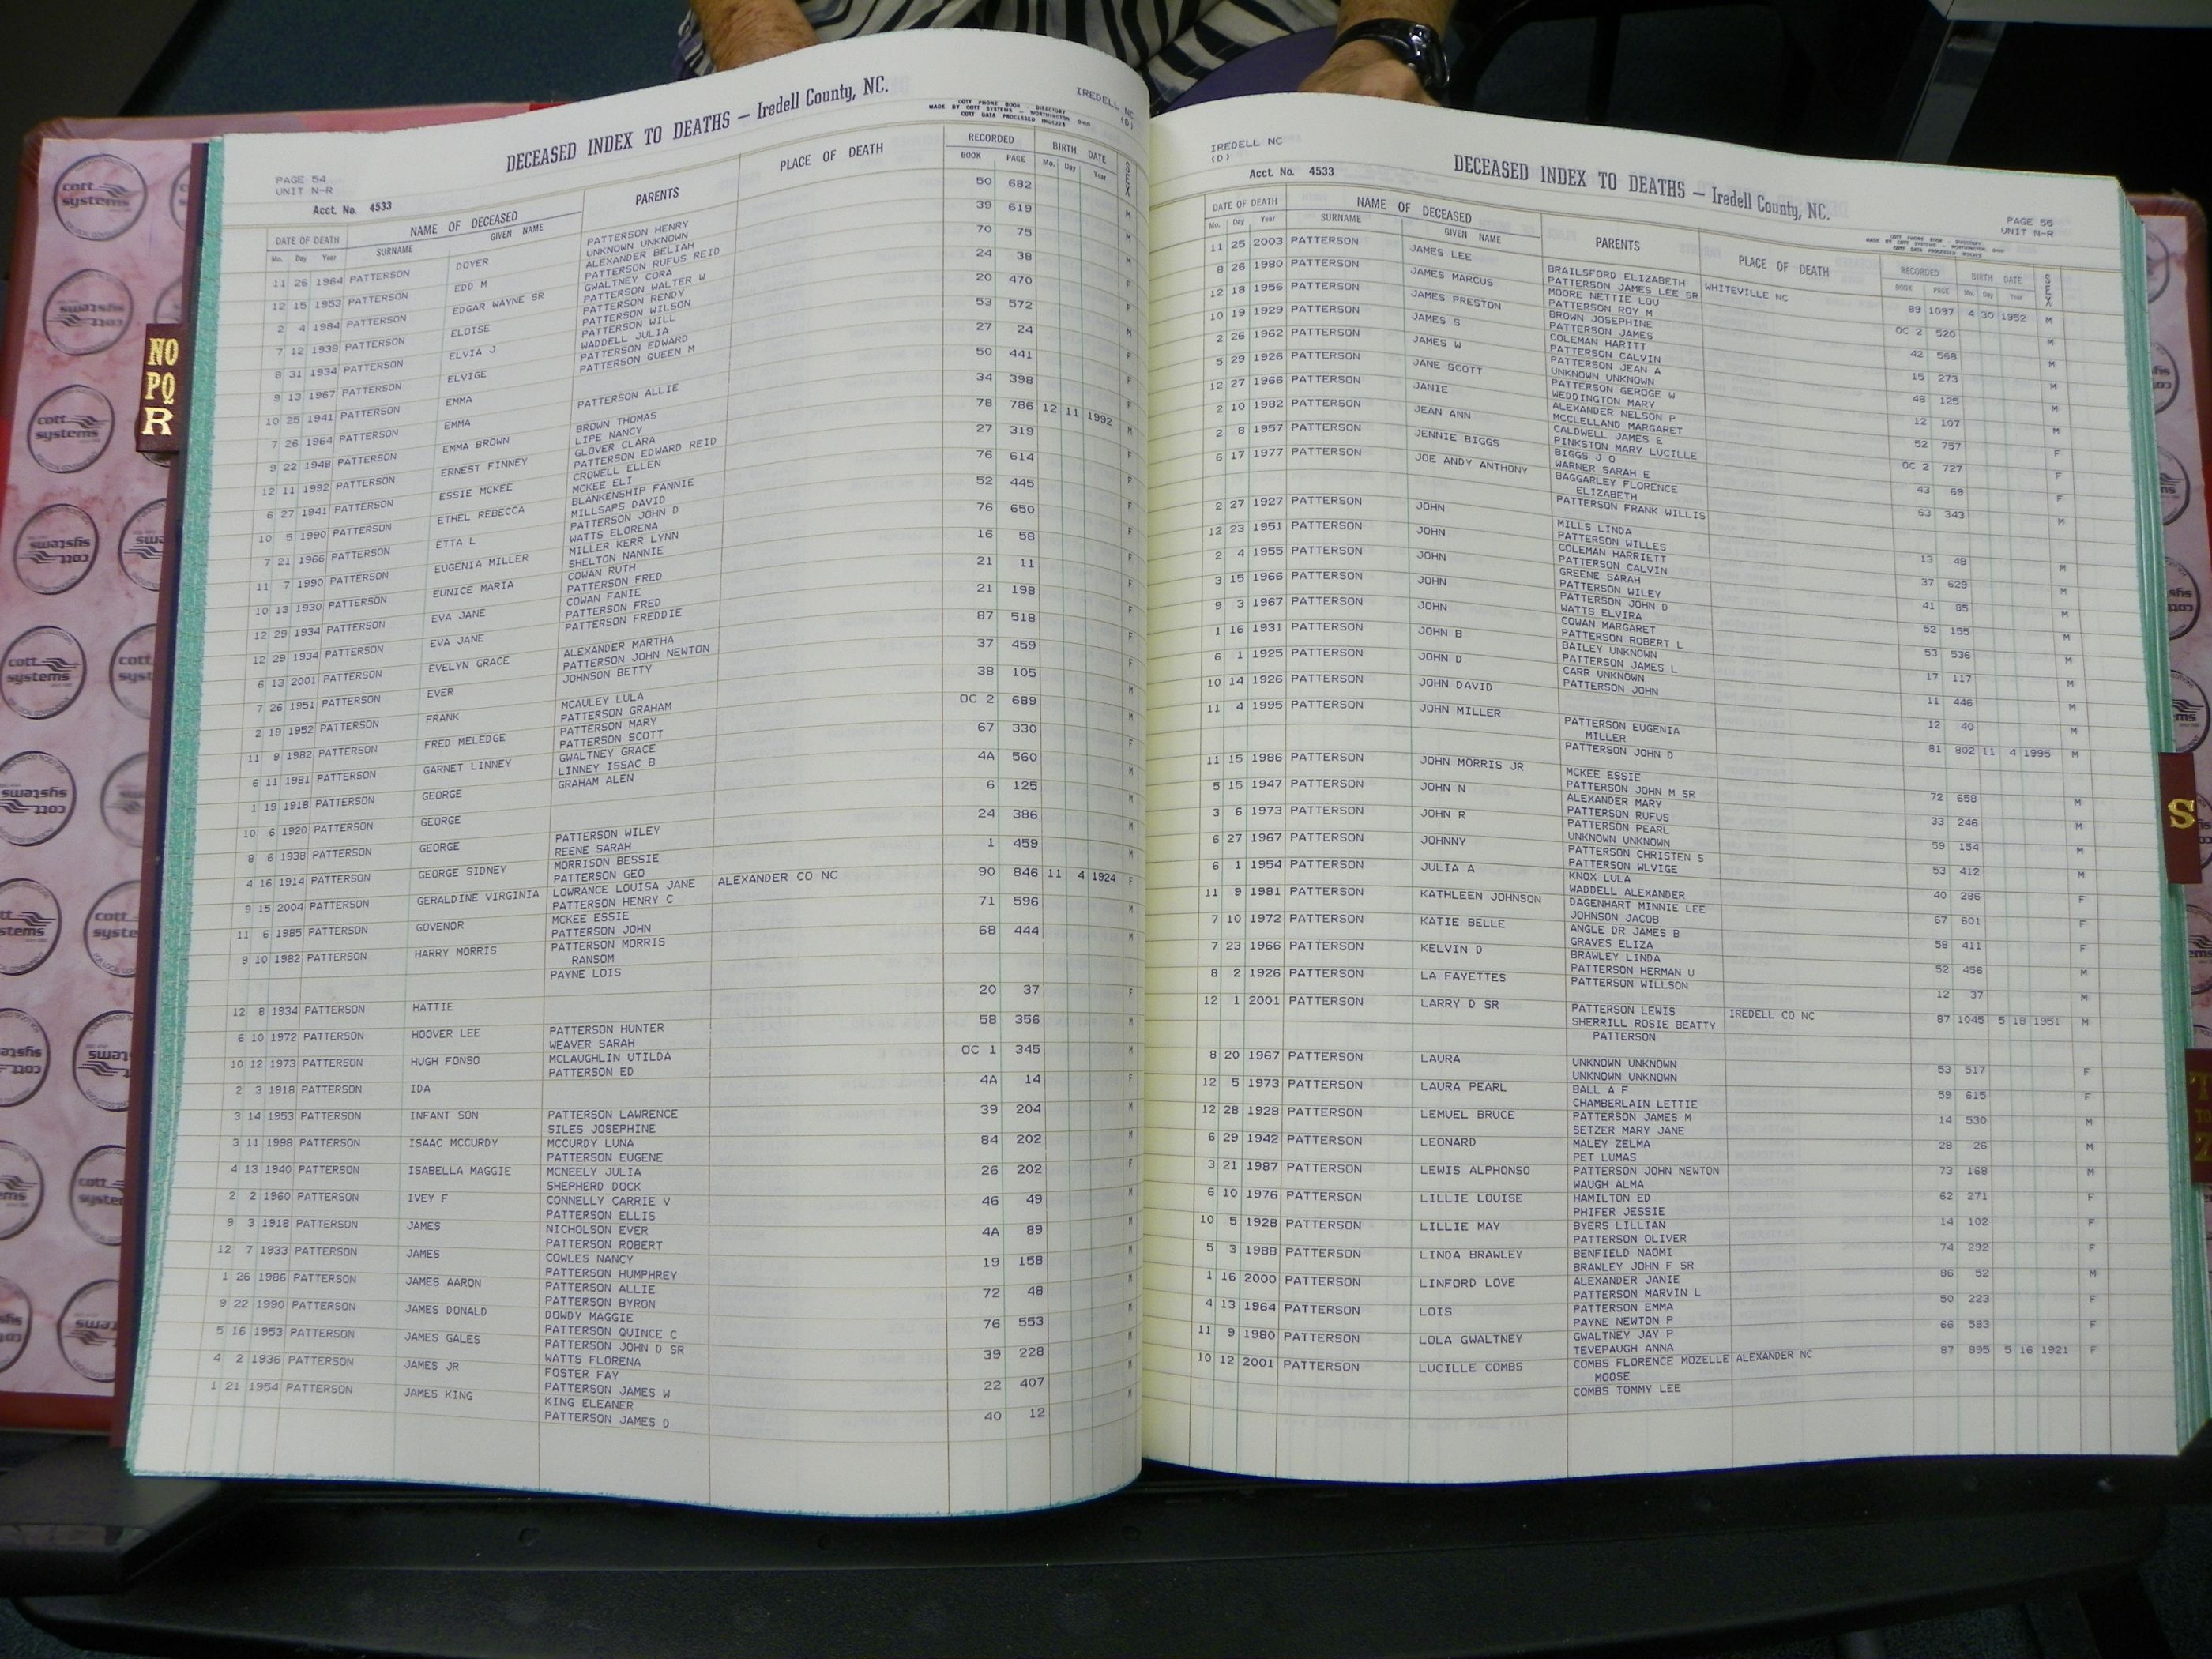 cott systems
NO
PQ
R
S
IREDELL NC
(D)
COTT PHONE BOOK - DIRECTORY
MADE BY COTT SYSTEMS - WORTHINGTON OHIO
COTT DATA PROCESSED INDEXES
DECEASED INDEX TO DEATHS — Iredell County, NC.
PAGE 54
UNIT N-R
Acct. No. 4533
DATE OF DEATH NAME OF DECEASED PARENTS PLACE OF DEATH RECORDED BIRTH DATE SEX
Mo. Day Year SURNAME GIVEN NAME BOOK PAGE Mo. Day Year
11 26 1964 PATTERSON DOYER PATTERSON HENRY 50 682 M
UNKNOWN UNKNOWN
12 15 1953 PATTERSON EDD M ALEXANDER BELIAH 39 619 M
PATTERSON RUFUS REID
2 4 1984 PATTERSON EDGAR WAYNE SR GWALTNEY CORA 70 75 M
PATTERSON WALTER W
7 12 1938 PATTERSON ELOISE PATTERSON RENDY 24 38 F
PATTERSON WILSON
8 31 1934 PATTERSON ELVIA J PATTERSON WILL 20 470 F
WADDELL JULIA
9 13 1967 PATTERSON ELVIGE PATTERSON EDWARD 53 572 M
PATTERSON QUEEN M
10 25 1941 PATTERSON EMMA 27 24 F
7 26 1964 PATTERSON EMMA PATTERSON ALLIE 50 441 F
9 22 1948 PATTERSON EMMA BROWN BROWN THOMAS 34 398 F
LIPE NANCY
12 11 1992 PATTERSON ERNEST FINNEY GLOVER CLARA 78 786 12 11 1992 M
PATTERSON EDWARD REID
6 27 1941 PATTERSON ESSIE MCKEE CROWELL ELLEN 27 319 F
MCKEE ELI
10 5 1990 PATTERSON ETHEL REBECCA BLANKENSHIP FANNIE 76 614 F
MILLSAPS DAVID
7 21 1966 PATTERSON ETTA L PATTERSON JOHN D 52 445 F
WATTS ELORENA
11 7 1990 PATTERSON EUGENIA MILLER MILLER KERR LYNN 76 650 F
SHELTON NANNIE
10 13 1930 PATTERSON EUNICE MARIA COWAN RUTH 16 58 F
PATTERSON FRED
12 29 1934 PATTERSON EVA JANE COWAN FANIE 21 11 F
PATTERSON FRED
12 29 1934 PATTERSON EVA JANE PATTERSON FREDDIE 21 198 F
6 13 2001 PATTERSON EVELYN GRACE ALEXANDER MARTHA 87 518 F
PATTERSON JOHN NEWTON
7 26 1951 PATTERSON EVER JOHNSON BETTY 37 459 F
2 19 1952 PATTERSON FRANK MCAULEY LULA 38 105 M
PATTERSON GRAHAM
11 9 1982 PATTERSON FRED MELEDGE PATTERSON MARY OC 2 689 M
PATTERSON SCOTT
6 11 1981 PATTERSON GARNET LINNEY GWALTNEY GRACE 67 330 F
LINNEY ISSAC B
1 19 1918 PATTERSON GEORGE GRAHAM ALEN 4A 560 M
10 6 1920 PATTERSON GEORGE 6 125 M
8 6 1938 PATTERSON GEORGE PATTERSON WILEY 24 386 M
REENE SARAH
4 16 1914 PATTERSON GEORGE SIDNEY MORRISON BESSIE 1 459 M
PATTERSON GEO
9 15 2004 PATTERSON GERALDINE VIRGINIA LOWRANCE LOUISA JANE ALEXANDER CO NC 90 846 11 4 1924 F
PATTERSON HENRY C
11 6 1985 PATTERSON GOVENOR MCKEE ESSIE 71 596 M
PATTERSON JOHN
9 10 1982 PATTERSON HARRY MORRIS PATTERSON MORRIS 68 444 M
RANSOM
PAYNE LOIS
12 8 1934 PATTERSON HATTIE 20 37 F
6 10 1972 PATTERSON HOOVER LEE PATTERSON HUNTER 58 356 M
WEAVER SARAH
10 12 1973 PATTERSON HUGH FONSO MCLAUGHLIN UTILDA OC 1 345 M
PATTERSON ED
2 3 1918 PATTERSON IDA 4A 14 F
3 14 1953 PATTERSON INFANT SON PATTERSON LAWRENCE 39 204 M
SILES JOSEPHINE
3 11 1998 PATTERSON ISAAC MCCURDY MCCURDY LUNA 84 202 M
PATTERSON EUGENE
4 13 1940 PATTERSON ISABELLA MAGGIE MCNEELY JULIA 26 202 F
SHEPHERD DOCK
2 2 1960 PATTERSON IVEY F CONNELLY CARRIE V 46 49 M
PATTERSON ELLIS
9 3 1918 PATTERSON JAMES NICHOLSON EVER 4A 89 M
PATTERSON ROBERT
12 7 1933 PATTERSON JAMES COWLES NANCY 19 158 M
PATTERSON HUMPHREY
1 26 1986 PATTERSON JAMES AARON PATTERSON ALLIE 72 48 M
PATTERSON BYRON
9 22 1990 PATTERSON JAMES DONALD DOWDY MAGGIE 76 553 M
PATTERSON QUINCE C
5 16 1953 PATTERSON JAMES GALES PATTERSON JOHN D SR 39 228 M
WATTS FLORENA
4 2 1936 PATTERSON JAMES JR FOSTER FAY 22 407 M
PATTERSON JAMES W
1 21 1954 PATTERSON JAMES KING KING ELEANER 40 12 M
PATTERSON JAMES D
IREDELL NC
(D)
Acct. No. 4533
DECEASED INDEX TO DEATHS — Iredell County, NC.
PAGE 55
UNIT N-R
DATE OF DEATH NAME OF DECEASED PARENTS PLACE OF DEATH RECORDED BIRTH DATE SEX
Mo. Day Year SURNAME GIVEN NAME BOOK PAGE Mo. Day Year
11 25 2003 PATTERSON JAMES LEE BRAILSFORD ELIZABETH WHITEVILLE NC 89 1097 4 30 1952 M
PATTERSON JAMES LEE SR
8 26 1980 PATTERSON JAMES MARCUS MOORE NETTIE LOU OC 2 520 M
PATTERSON ROY M
12 18 1956 PATTERSON JAMES PRESTON BROWN JOSEPHINE 42 568 M
PATTERSON JAMES
10 19 1929 PATTERSON JAMES S COLEMAN HARITT 15 273 M
PATTERSON CALVIN
2 26 1962 PATTERSON JAMES W PATTERSON JEAN A 48 125 M
UNKNOWN UNKNOWN
5 29 1926 PATTERSON JANE SCOTT PATTERSON GEROGE W 12 107 M
WEDDINGTON MARY
12 27 1966 PATTERSON JANIE ALEXANDER NELSON P 52 757 F
MCCLELLAND MARGARET
2 10 1982 PATTERSON JEAN ANN CALDWELL JAMES E OC 2 727 F
PINKSTON MARY LUCILLE
2 8 1957 PATTERSON JENNIE BIGGS BIGGS J O 43 69 F
WARNER SARAH E
6 17 1977 PATTERSON JOE ANDY ANTHONY BAGGARLEY FLORENCE 63 343 M
ELIZABETH
PATTERSON FRANK WILLIS
2 27 1927 PATTERSON JOHN MILLS LINDA 13 48 M
PATTERSON WILLES
12 23 1951 PATTERSON JOHN COLEMAN HARRIETT 37 629 M
PATTERSON CALVIN
2 4 1955 PATTERSON JOHN GREENE SARAH 41 85 M
PATTERSON WILEY
3 15 1966 PATTERSON JOHN PATTERSON JOHN D 52 155 M
WATTS ELVIRA
9 3 1967 PATTERSON JOHN COWAN MARGARET 53 536 M
PATTERSON ROBERT L
1 16 1931 PATTERSON JOHN B BAILEY UNKNOWN 17 117 M
PATTERSON JAMES L
6 1 1925 PATTERSON JOHN D CARR UNKNOWN 11 446 M
PATTERSON JOHN
10 14 1926 PATTERSON JOHN DAVID 12 40 M
11 4 1995 PATTERSON JOHN MILLER PATTERSON EUGENIA 81 802 11 4 1995 M
MILLER
PATTERSON JOHN D
11 15 1986 PATTERSON JOHN MORRIS JR MCKEE ESSIE 72 658 M
PATTERSON JOHN M SR
5 15 1947 PATTERSON JOHN N ALEXANDER MARY 33 246 M
PATTERSON RUFUS
3 6 1973 PATTERSON JOHN R PATTERSON PEARL 59 154 M
UNKNOWN UNKNOWN
6 27 1967 PATTERSON JOHNNY PATTERSON CHRISTEN S 53 412 M
PATTERSON WLVIGE
6 1 1954 PATTERSON JULIA A KNOX LULA 40 286 F
WADDELL ALEXANDER
11 9 1981 PATTERSON KATHLEEN JOHNSON DAGENHART MINNIE LEE 67 601 F
JOHNSON JACOB
7 10 1972 PATTERSON KATIE BELLE ANGLE DR JAMES B 58 411 F
GRAVES ELIZA
7 23 1966 PATTERSON KELVIN D BRAWLEY LINDA 52 456 M
PATTERSON HERMAN U
8 2 1926 PATTERSON LA FAYETTES PATTERSON WILLSON 12 37 M
12 1 2001 PATTERSON LARRY D SR PATTERSON LEWIS IREDELL CO NC 87 1045 5 18 1951 M
SHERRILL ROSIE BEATTY
PATTERSON
8 20 1967 PATTERSON LAURA UNKNOWN UNKNOWN 53 517 F
UNKNOWN UNKNOWN
12 5 1973 PATTERSON LAURA PEARL BALL A F 59 615 F
CHAMBERLAIN LETTIE
12 28 1928 PATTERSON LEMUEL BRUCE PATTERSON JAMES M 14 530 M
SETZER MARY JANE
6 29 1942 PATTERSON LEONARD MALEY ZELMA 28 26 M
PET LUMAS
3 21 1987 PATTERSON LEWIS ALPHONSO PATTERSON JOHN NEWTON 73 168 M
WAUGH ALMA
6 10 1976 PATTERSON LILLIE LOUISE HAMILTON ED 62 271 F
PHIFER JESSIE
10 5 1928 PATTERSON LILLIE MAY BYERS LILLIAN 14 102 F
PATTERSON OLIVER
5 3 1988 PATTERSON LINDA BRAWLEY BENFIELD NAOMI 74 292 F
BRAWLEY JOHN F SR
1 16 2000 PATTERSON LINFORD LOVE ALEXANDER JANIE 86 52 M
PATTERSON MARVIN L
4 13 1964 PATTERSON LOIS PATTERSON EMMA 50 223 F
PAYNE NEWTON P
11 9 1980 PATTERSON LOLA GWALTNEY GWALTNEY JAY P 66 583 F
TEVEPAUGH ANNA
10 12 2001 PATTERSON LUCILLE COMBS COMBS FLORENCE MOZELLE ALEXANDER NC 87 895 5 16 1921 F
MOOSE
COMBS TOMMY LEE